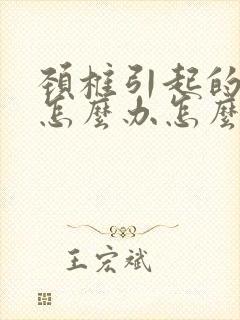 頸椎引起的
怎麼办怎麼
王宏斌